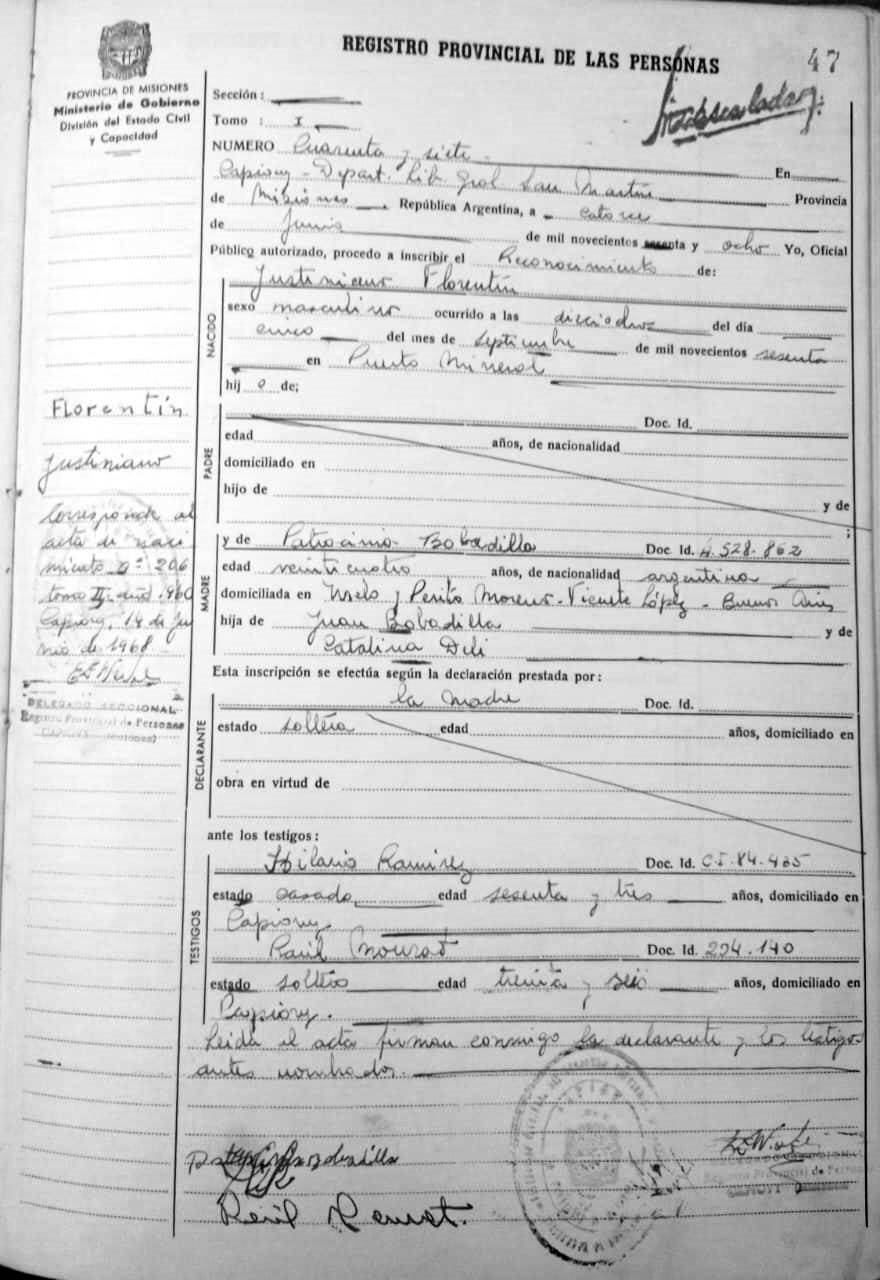 REGISTRO PROVINCIAL DE LAS PERSONAS
47
PROVINCIA DE MISIONES
Ministerio de Gobierno
División del Estado Civil
y Capacidad
Sección:
Tomo : I
NUMERO Cuarenta y siete
Capiovy - Depart. Lib. Gral San Martín En
de Misiones República Argentina, a catorce Provincia
de Junio de mil novecientos sesenta y ocho Yo, Oficial
Público autorizado, procedo a inscribir el Reconocimiento de:
NACIDO
Justiniano Florentín
sexo masculino ocurrido a las dieciocho del día
cinco del mes de septiembre de mil novecientos sesenta
en Puerto Mineral
hij o de;
PADRE
Doc. Id.
edad años, de nacionalidad
domiciliado en
hijo de y de
;
MADRE
y de Patrocinia Bobadilla Doc. Id. 4.528.862
edad veinticuatro años, de nacionalidad argentina
domiciliada en Melo y Perito Moreno - Vicente López - Buenos Aires
hija de Juan Bobadilla y de
Catalina Deli
Esta inscripción se efectúa según la declaración prestada por:
DECLARANTE
la madre Doc. Id.
estado soltera edad años, domiciliado en
obra en virtud de
ante los testigos:
TESTIGOS
Hilario Ramirez Doc. Id. C.I. 84.435
estado casado edad sesenta y tres años, domiciliado en
Capiovy
Raúl Mourat Doc. Id. 234.140
estado soltero edad treinta y seis años, domiciliado en
Capiovy.
Leída el acta firman conmigo la declarante y los testigos
antes nombrados.
Florentín
Justiniano
Corresponde al
acta de naci
miento nº 206
tomo II año 1960
Capiovy, 14 de Ju
nio de 1968.
DELEGADO SECCIONAL
Registro Provincial de Personas
Raúl Mourat.
Registro Provincial de Personas